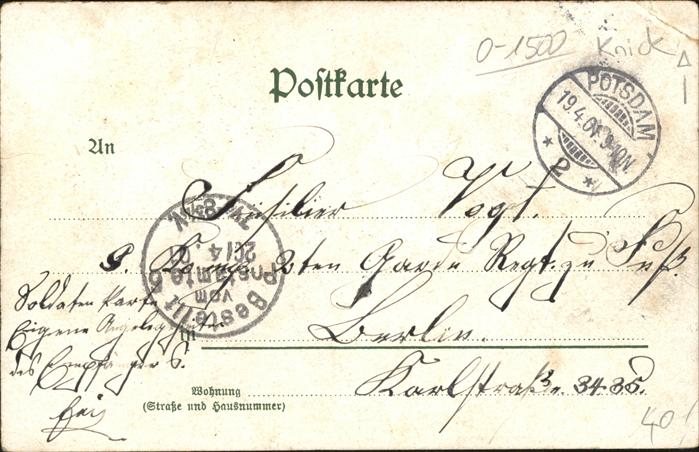 0-1500 Knick
Postkarte
POTSDAM
19.4.01. 9-10N.
* 2 *
An
Füsilier Vogt.
9. Komp. 2ten Garde Regt. zu Fuß.
Bestellt
vom
Postamte
20/4
01
Soldaten Karte
Eigene Angelegenheiten
des Empfängers.
in Berlin.
Wohnung
(Straße und Hausnummer)
Karlstraße. 34-35.
40